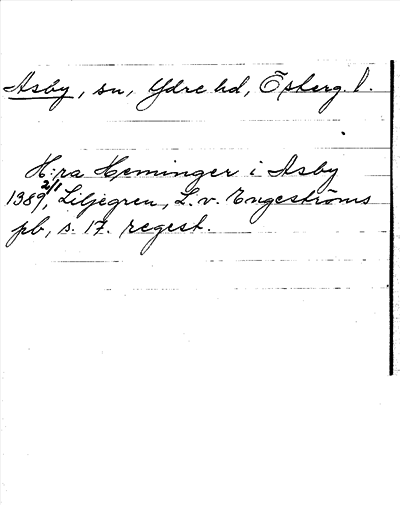 Asby, sn, Ydre hd, Östberg. l.
H:ra Heminger i Asby
1389 2/1, Liljegren, L. v. Engeströms
pb, s. 17. regest.